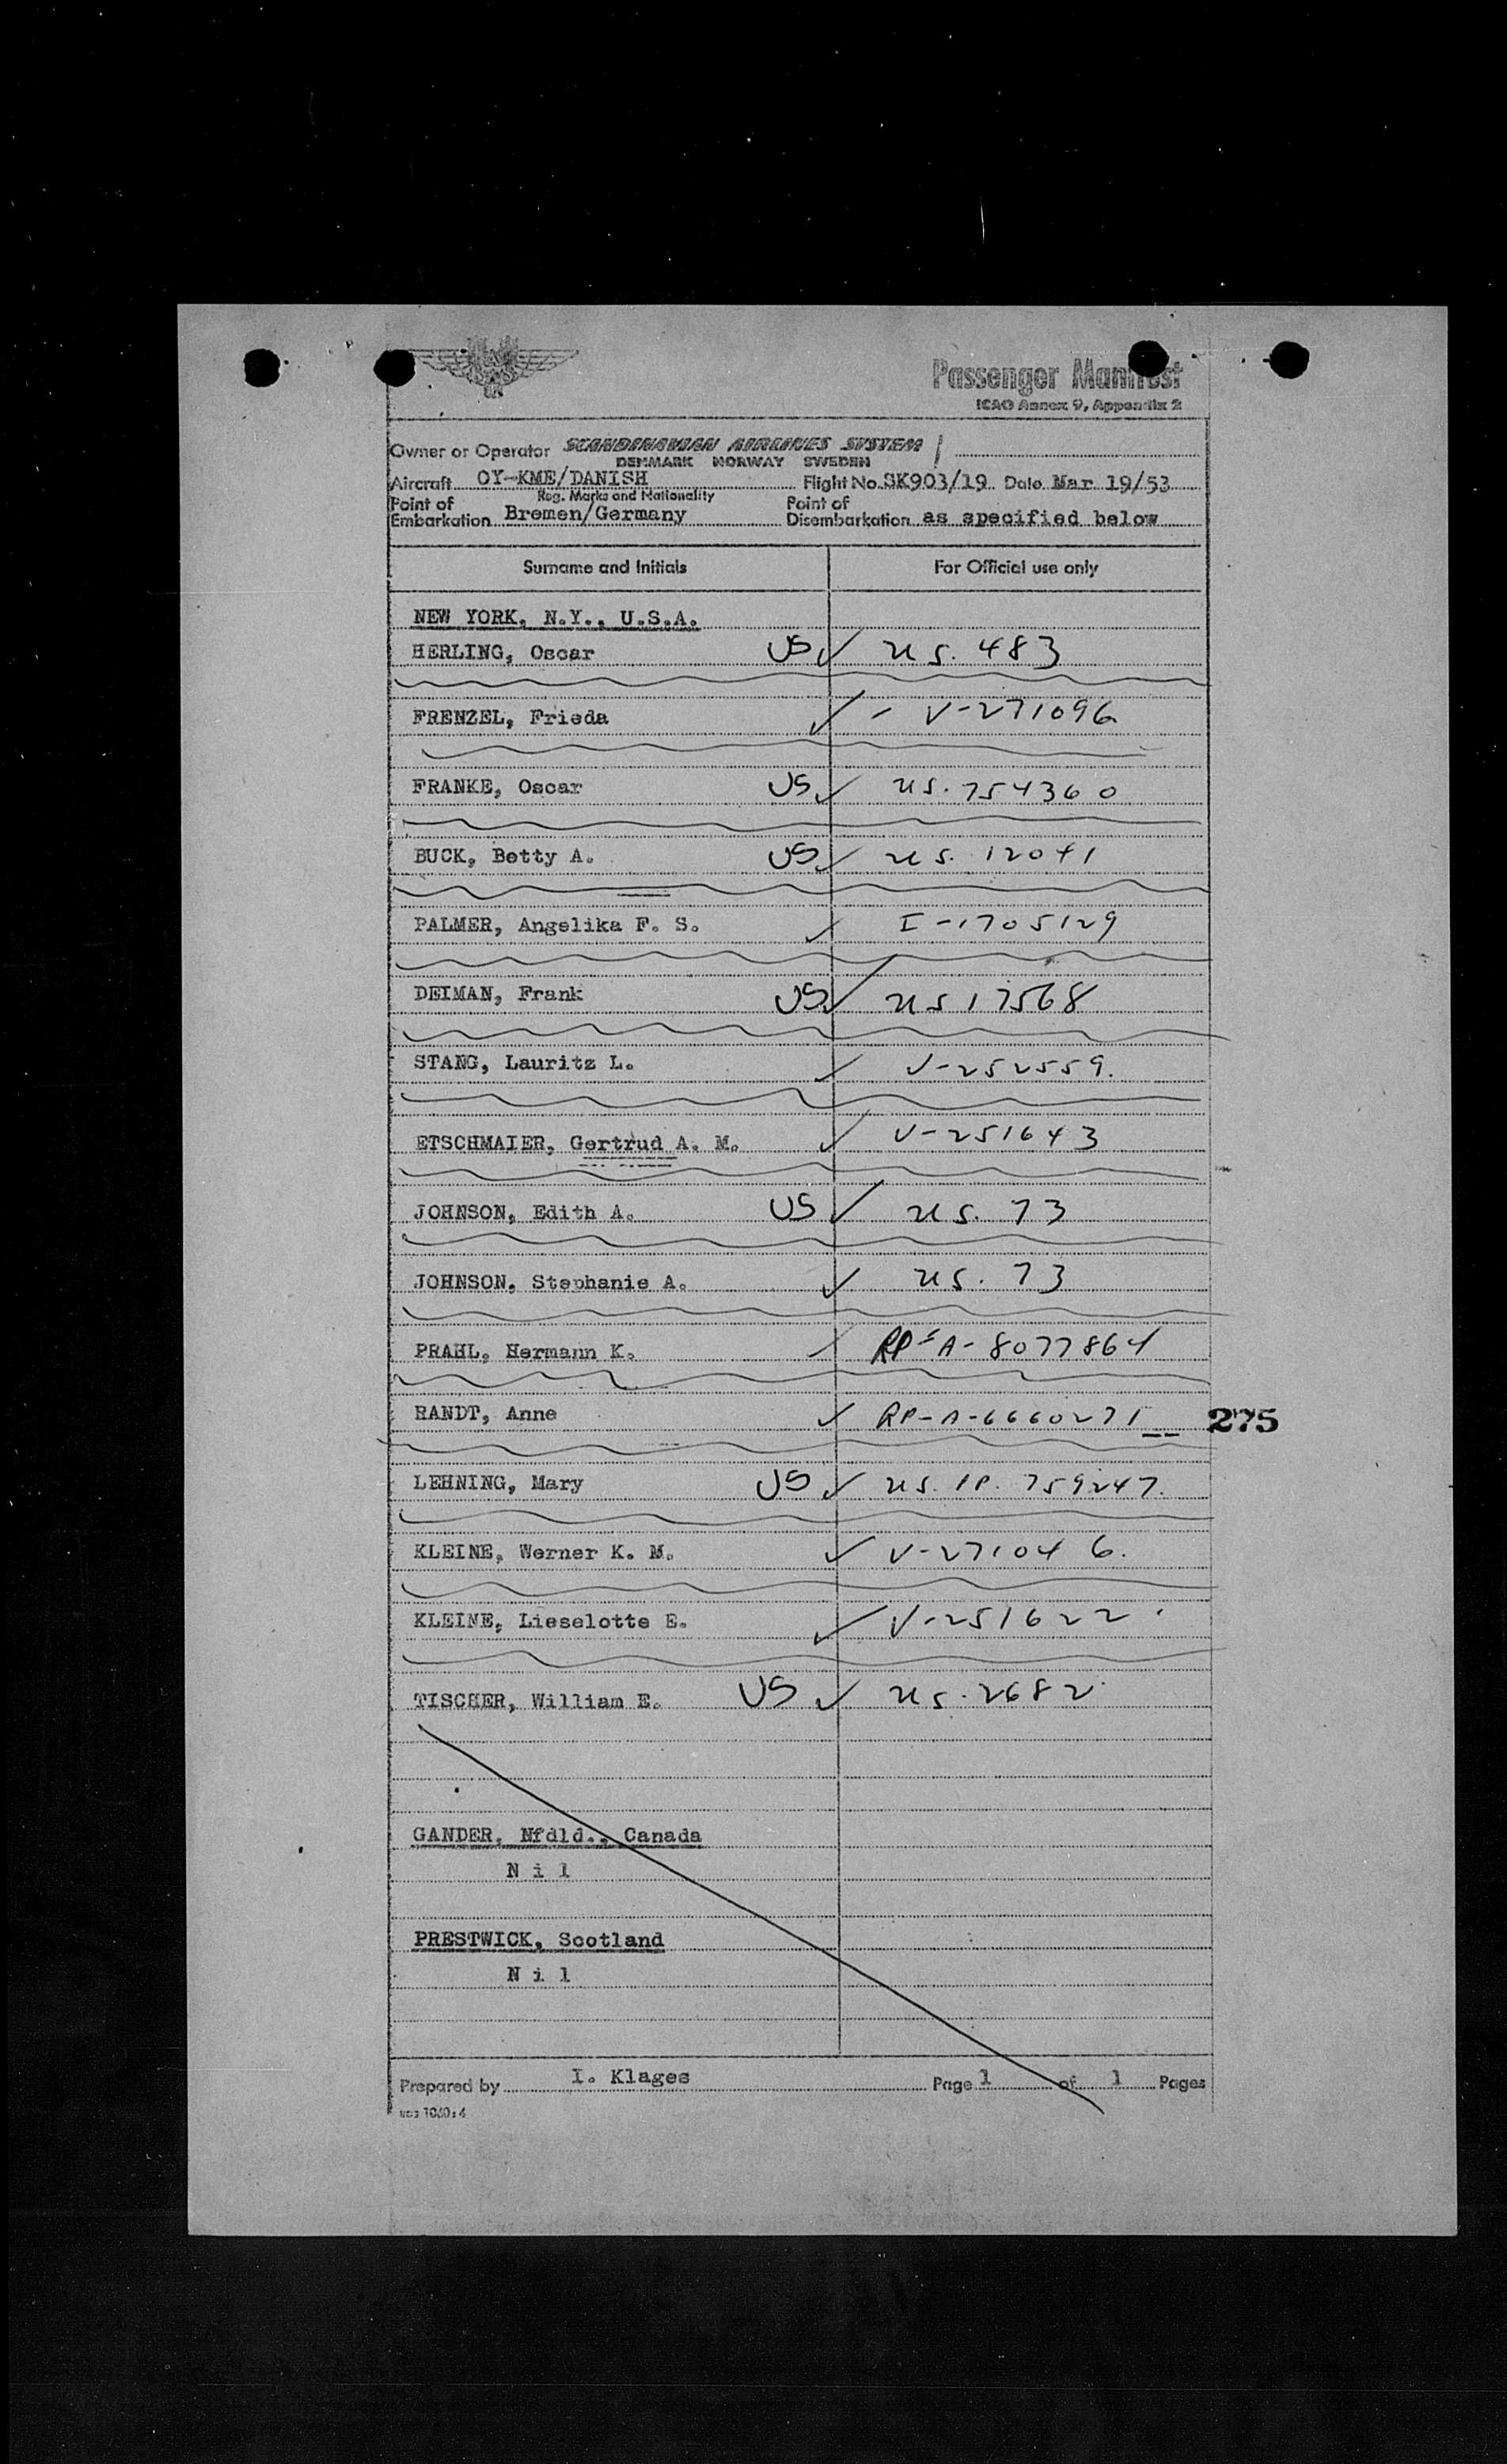 Passenger Manifest
ICAO Annex 9, Appendix 2
Owner or Operator SCANDINAVIAN AIRLINES SYSTEM
DENMARK NORWAY SWEDEN
Aircraft OY-KME/DANISH Flight No. SK903/19 Date Mar 19/53
Reg. Marks and Nationality
Point of Embarkation Bremen/Germany Point of Disembarkation as specified below
Surname and Initials For Official use only
NEW YORK, N.Y., U.S.A.
HERLING, Oscar US ✓ US. 483
FRENZEL, Frieda ✓ - V-271096
FRANKE, Oscar US ✓ US. 754360
BUCK, Betty A. US ✓ US. 12041
PALMER, Angelika F. S. ✓ I-1705129
DEIMAN, Frank US ✓ US 17568
STANG, Lauritz L. ✓ V-252559.
ETSCHMAIER, Gertrud A. M. ✓ V-251643
JOHNSON, Edith A. US ✓ US. 73
JOHNSON, Stephanie A. ✓ US. 73
PRAHL, Hermann K. ✓ RP-A-8077864
RANDT, Anne ✓ RP-A-6660271 275
LEHNING, Mary US ✓ US. 759247.
KLEINE, Werner K. M. ✓ V-271046.
KLEINE, Lieselotte E. ✓ V-251622
TISCHER, William E. US ✓ US. 2682
GANDER, Nfdld., Canada
N i l
PRESTWICK, Scotland
N i l
Prepared by I. Klages Page 1 of 1 Pages